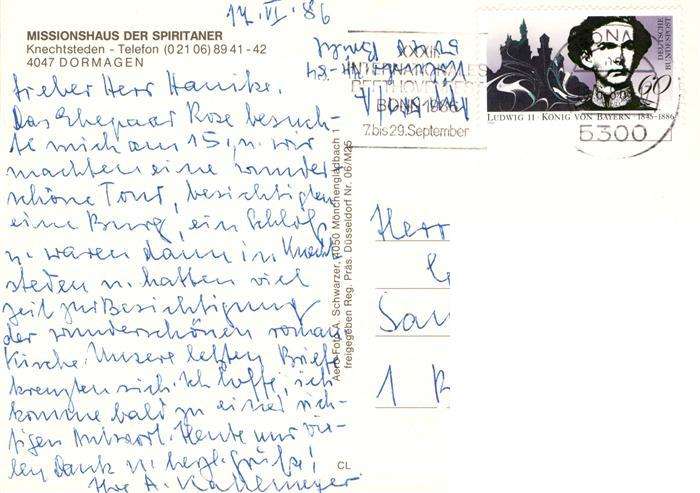 17.VI.86
MISSIONSHAUS DER SPIRITANER
Knechtsteden - Telefon (0 21 06) 89 41 - 42
4047 DORMAGEN
Lieber Herr
das Ehepaar Rose besuch-
te mich am 15. u. wir
machten eine wunder
schöne Tour, besichtigten
eine Burg, ein Schloß
u. waren dann in Knecht
steden u. hatten viel
Zeit zur Besichtigung
der wunderschönen roman
Kirche. Unsere letzten Briefe
kreuzten sich. Ich hoffe, ich
komme bald zu einer rich-
tigen Antwort. Heute nur vie-
len Dank u. herzl. Grüße!
Ihre A.
Aero-Foto A. Schwarzer, 4050 Mönchengladbach 1
freigegeben Reg. Präs. Düsseldorf Nr. 06/M25
CL
XXXII
INTERNATIONALES
BEETHOVENFEST
BONN 1986
7. bis 29. September
BONN
5300
DEUTSCHE
BUNDESPOST
60
LUDWIG II · KÖNIG VON BAYERN · 1845-1886
Herr
1